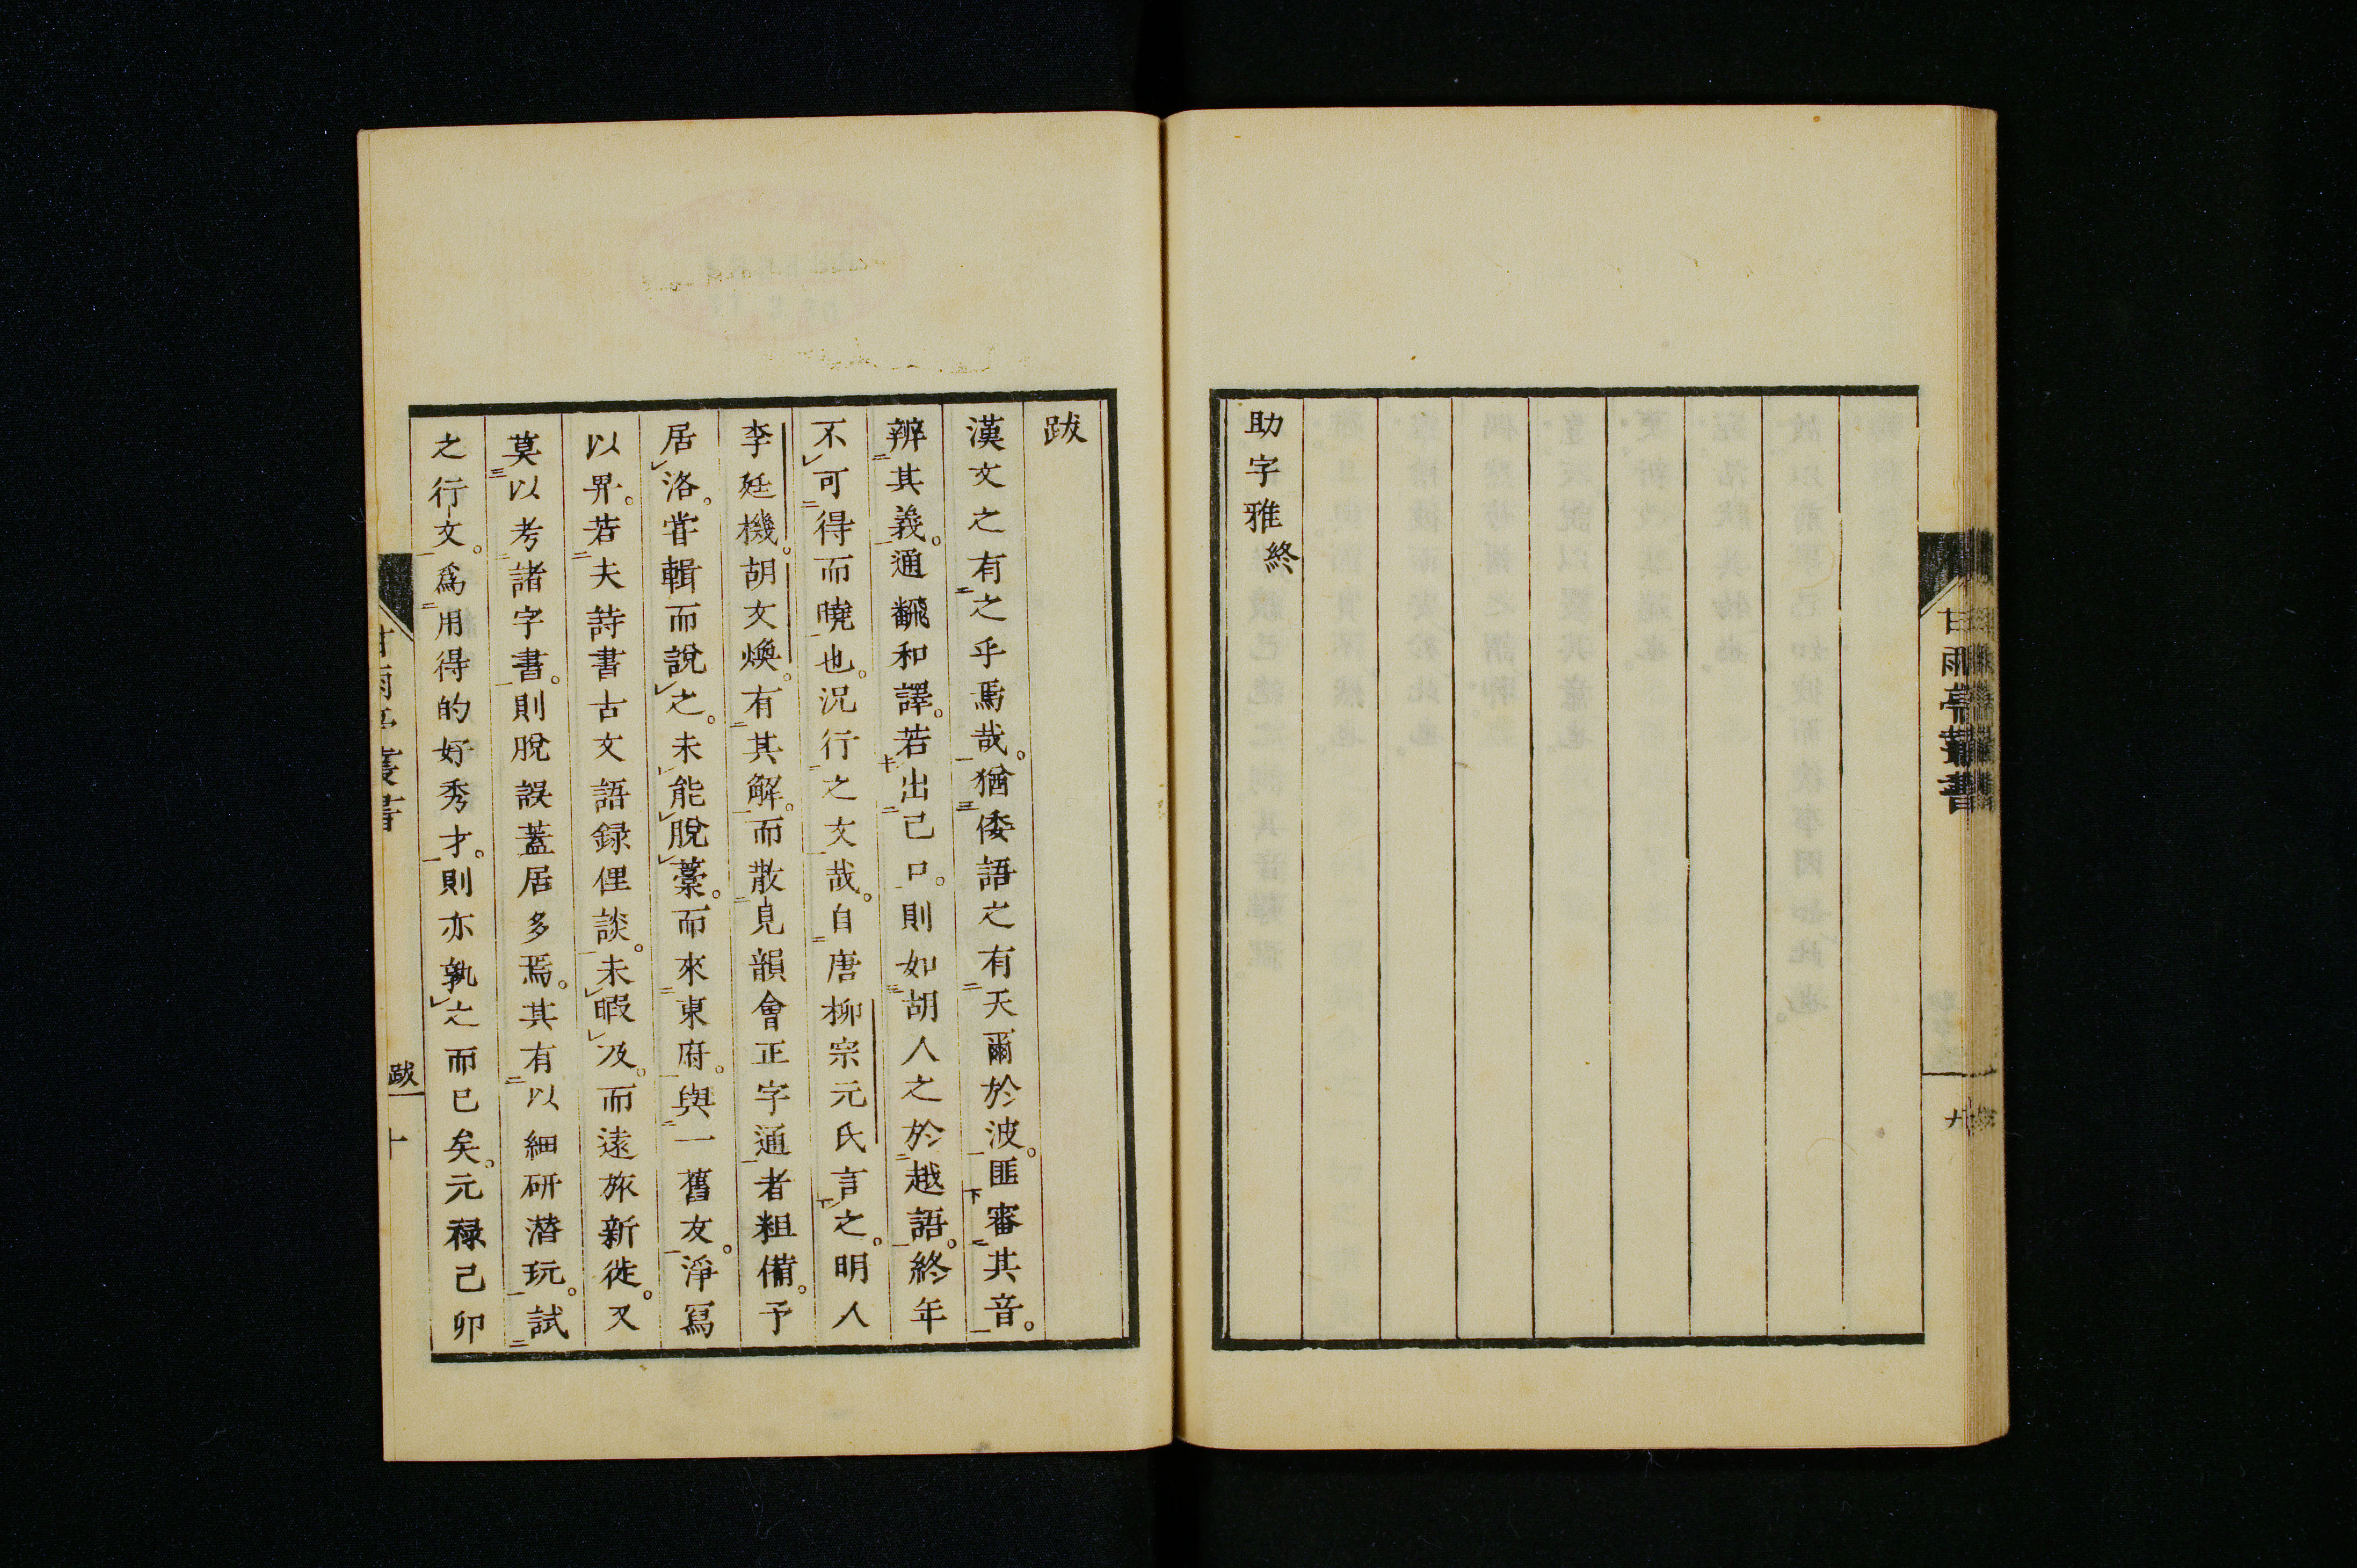 甘雨亭叢書
九
助字雅終
跋
漢文之有之乎焉哉。猶倭語之有天爾於波。匪審其音。
辨其義。通飜和譯。若出己口。則如胡人之於越語。終年
不可得而曉也。況行之文哉。自唐柳宗元氏言之。明人
李廷機。胡文煥。有其解。而散見韻會正字通者粗備。予
居洛。嘗輯而說之。未能脫藁。而來東府。與一舊友。淨寫
以畀。若夫詩書古文語録俚談。未暇及。而遠旅新徙。又
莫以考諸字書。則脫誤蓋居多焉。其有以細研潜玩。試
之行文。爲用得的好秀才。則亦孰之而已矣。元禄己卯
甘雨亭叢書
跋
十